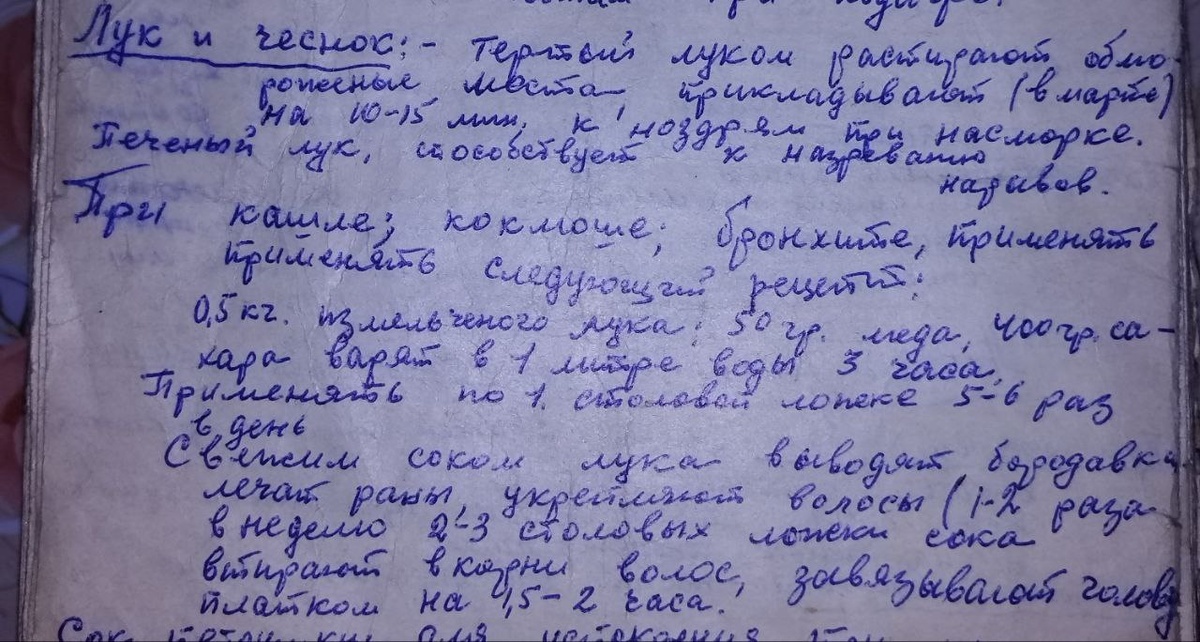 при подагре.
Лук и чеснок:- тертым луком растирают обмо-
роженые места, прикладывают (в марле)
на 10-15 мин. к ноздрям при насморке.
Печеный лук, способствует к назреванию
нарывов.
При кашле; коклюше; бронхите, применять
применять следующий рецепт:
0,5 кг. измельченого лука; 50 гр. меда, 400 гр. са-
хара варят в 1 литре воды 3 часа.
Применять по 1 столовой ложке 5-6 раз
в день
Свежим соком лука выводят бородавки
лечат раны, укрепляют волосы (1-2 раза
в неделю 2-3 столовых ложки сока
втирают в корни волос, завязывают голову
платком на 1,5-2 часа.
Сок петрушки для